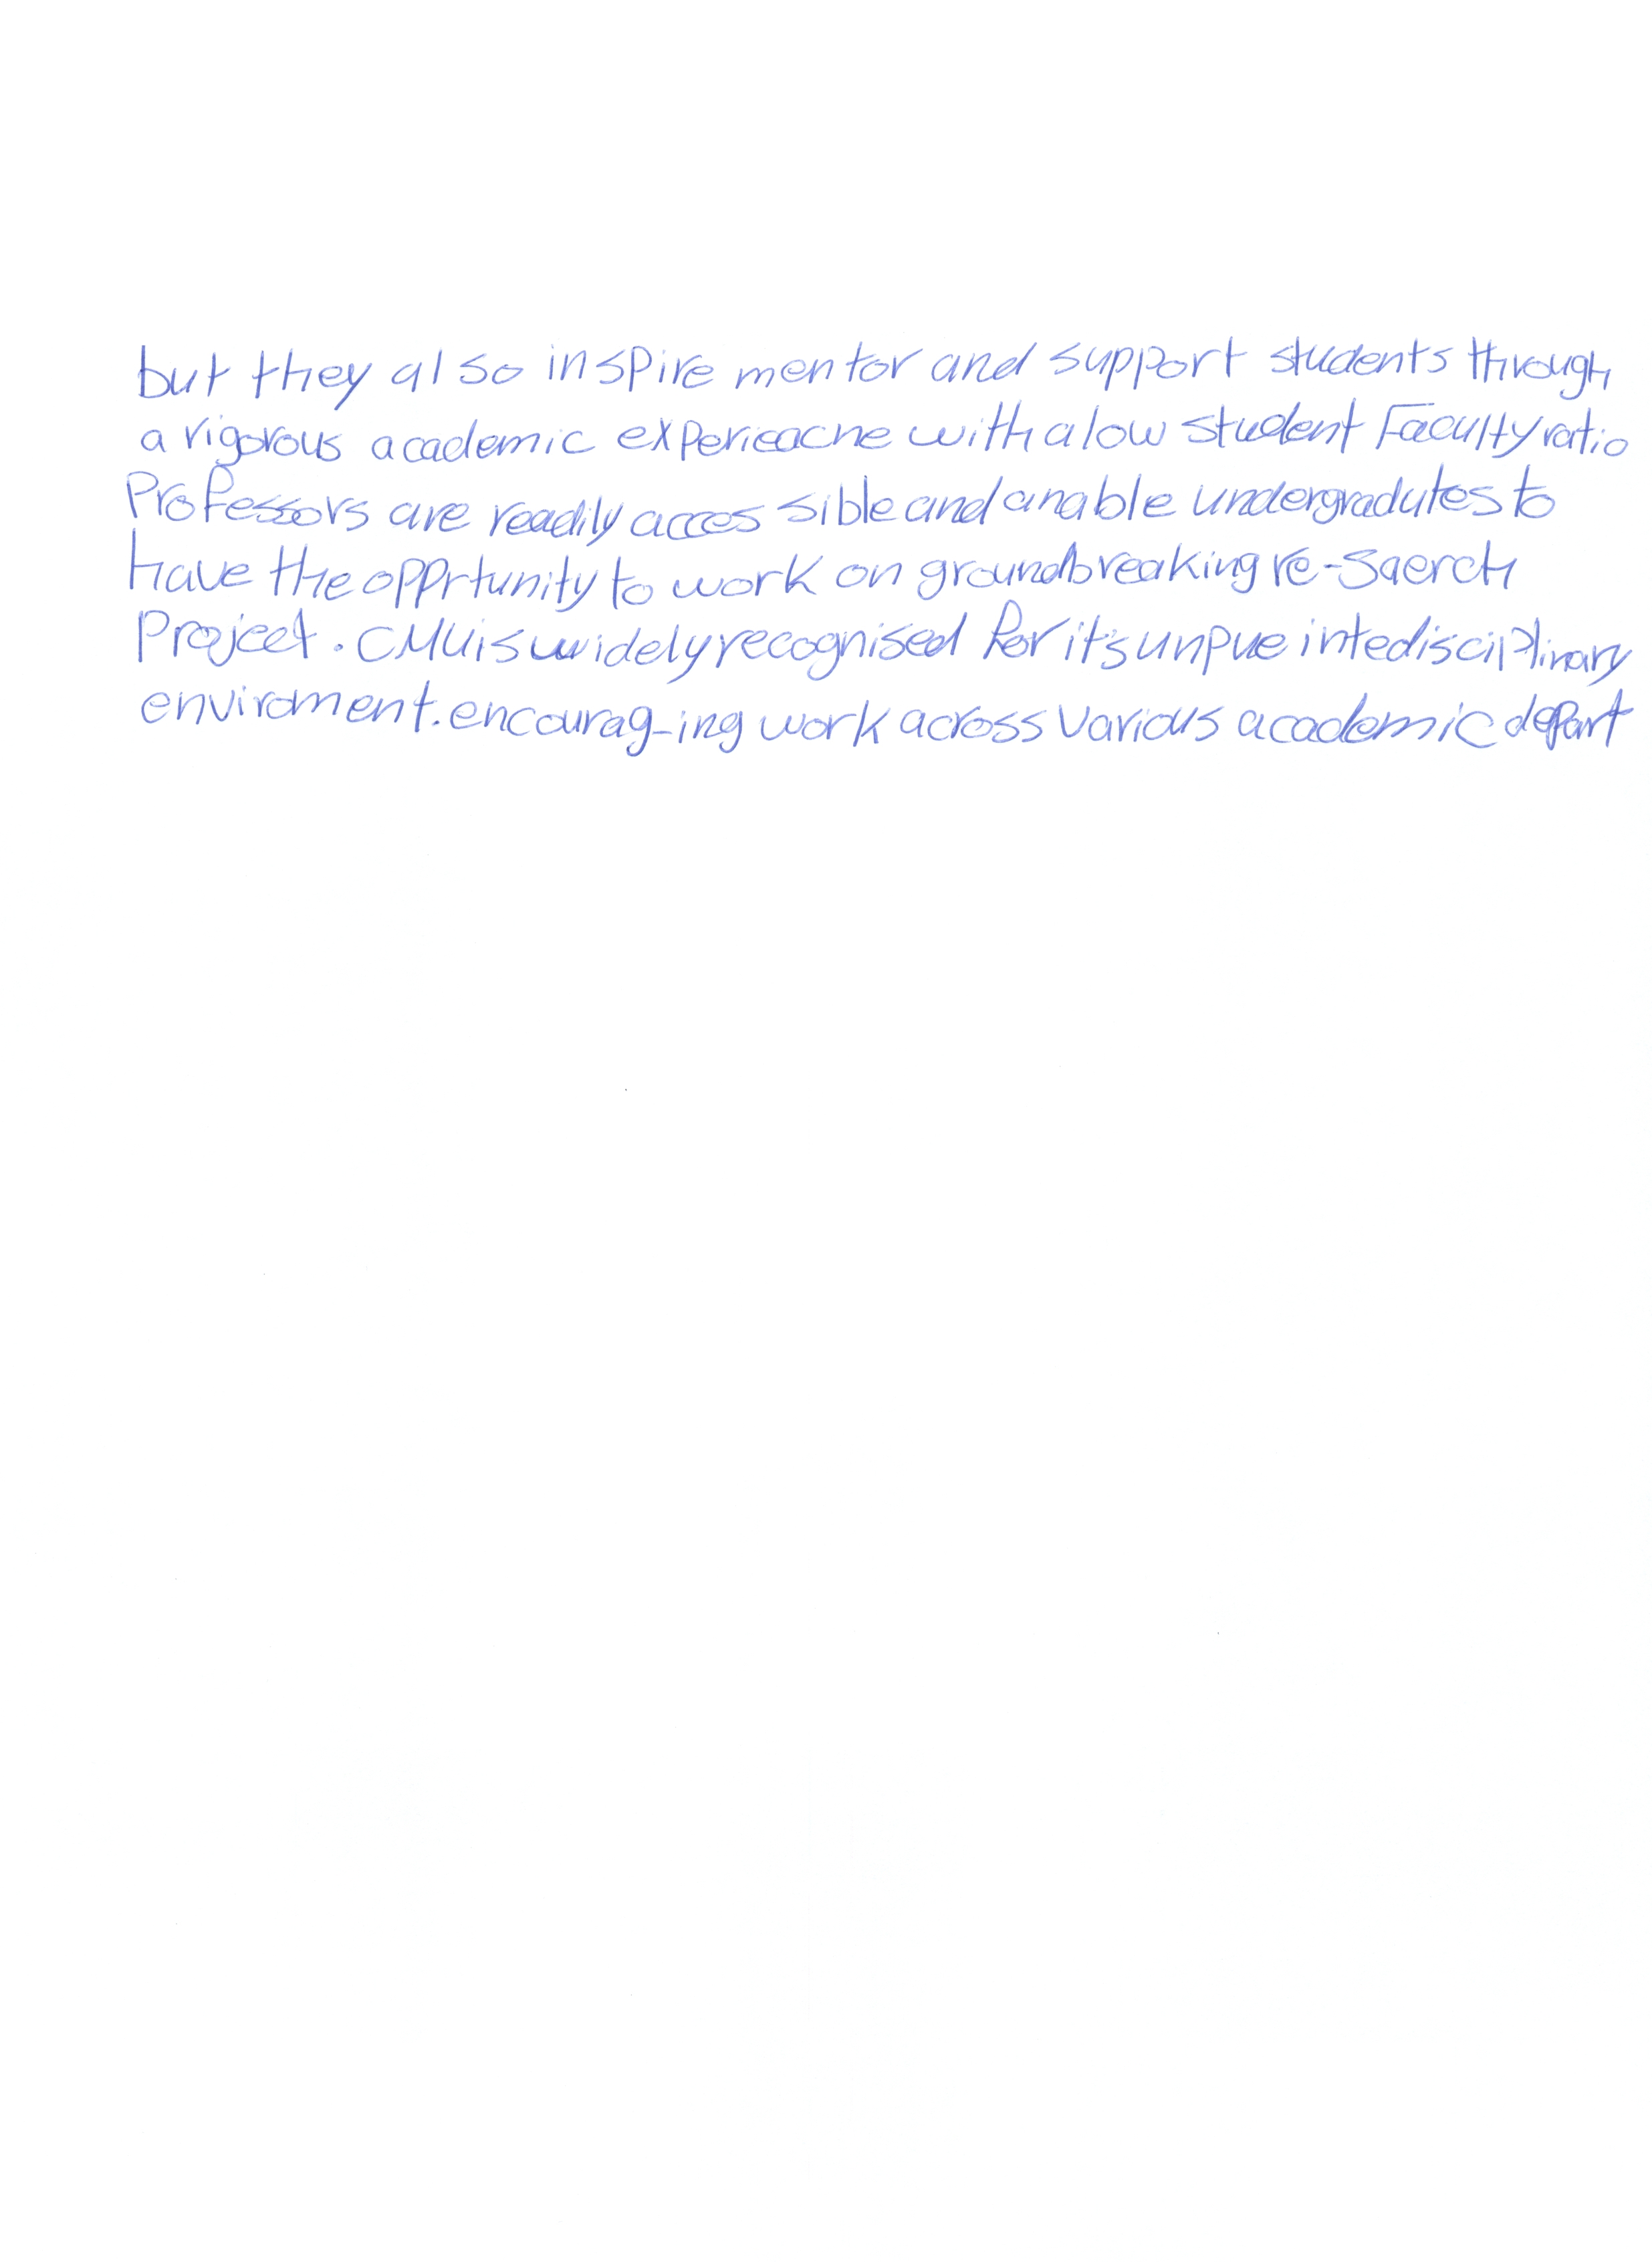 but they also inspire mentor and support students through
a rigorous academic experieacne with a low student Faculty ratio
Professors are readily acces sible and anable undergradutes to
have the opprtunity to work on groundbreaking re-saerch
Project. CMU is widely recognised for it's unpue intedisciplinary
enviroment. encourag-ing work across various academic depart